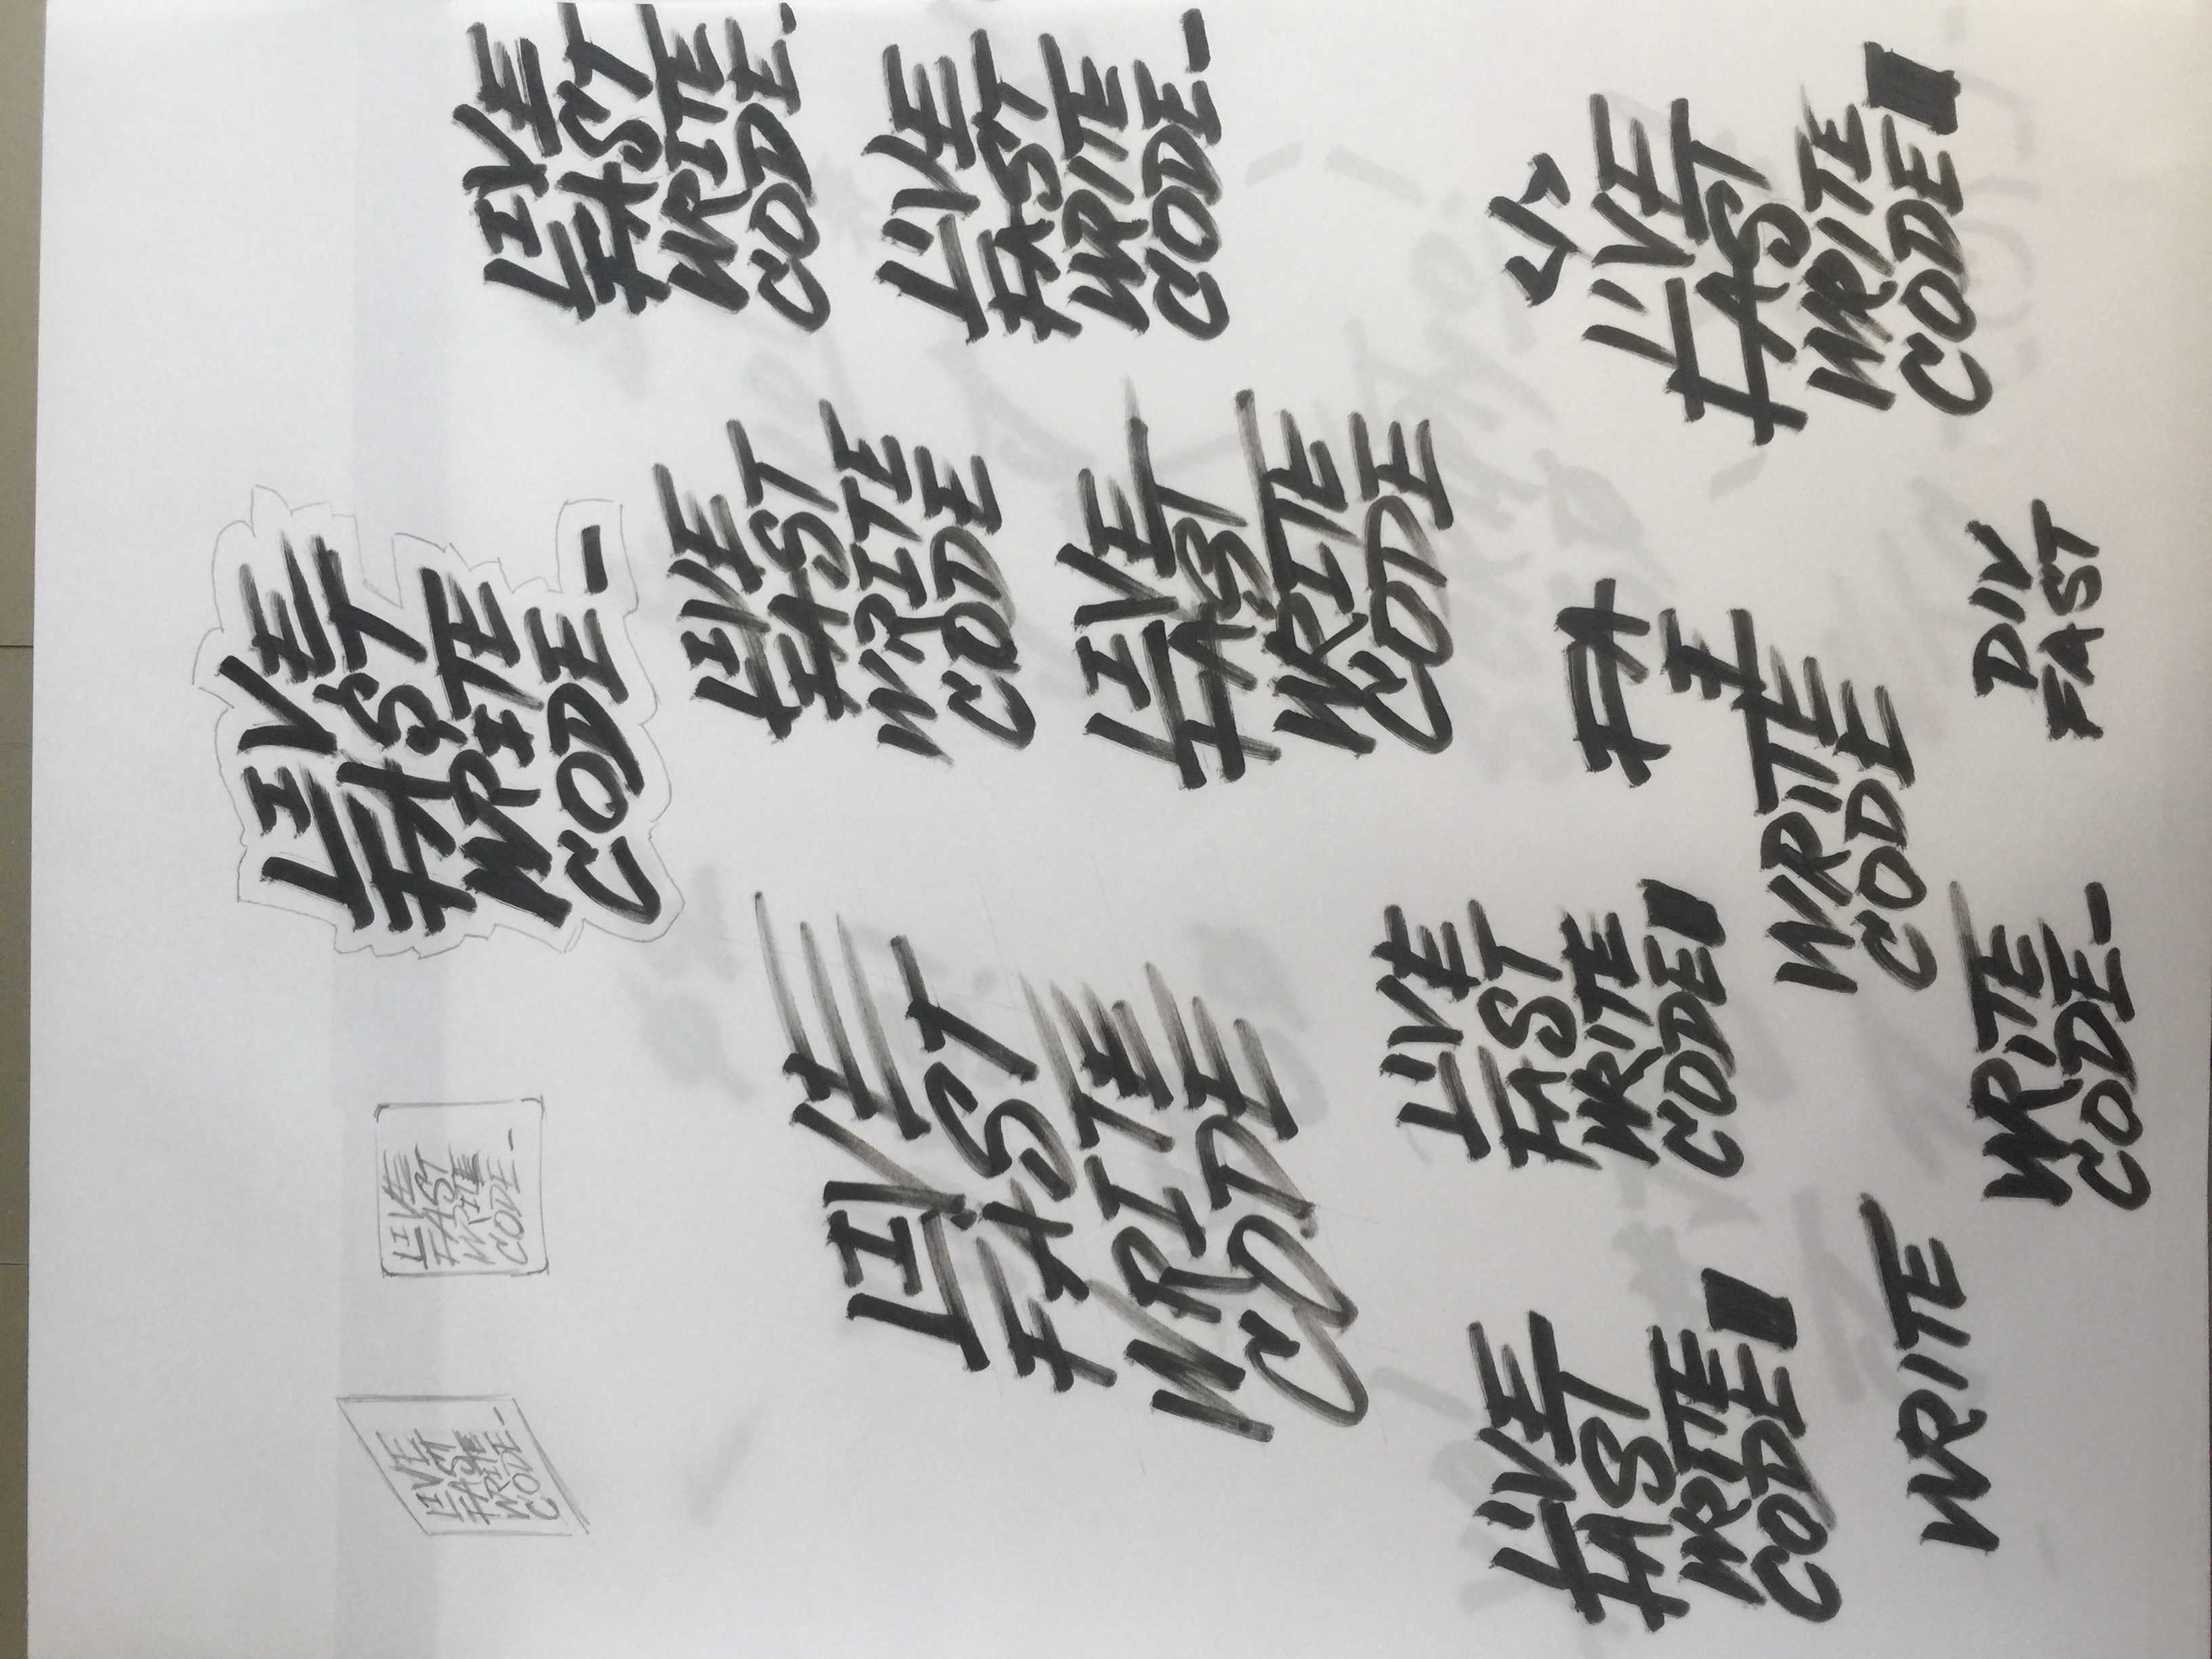 LIVE
FAST
WRITE
CODE_
LIVE
FAST
WRITE
CODE_
LIVE
FAST
WRITE
CODE_
LIVE
FAST
WRITE
CODE_
LIVE
FAST
WRITE
CODE
LIVE
FAST
WRITE
CODE
LIVE
FAST
WRITE
CODE_
LIVE
FAST
WRITE
CODE
LIVE
FAST
WRITE
CODE
LIVE
FAST
WRITE
CODE
FA
E
WRITE
CODE
</>
LIVE
FAST
WRITE
CODE
WRITE
WRITE
CODE_
DIV
FAST